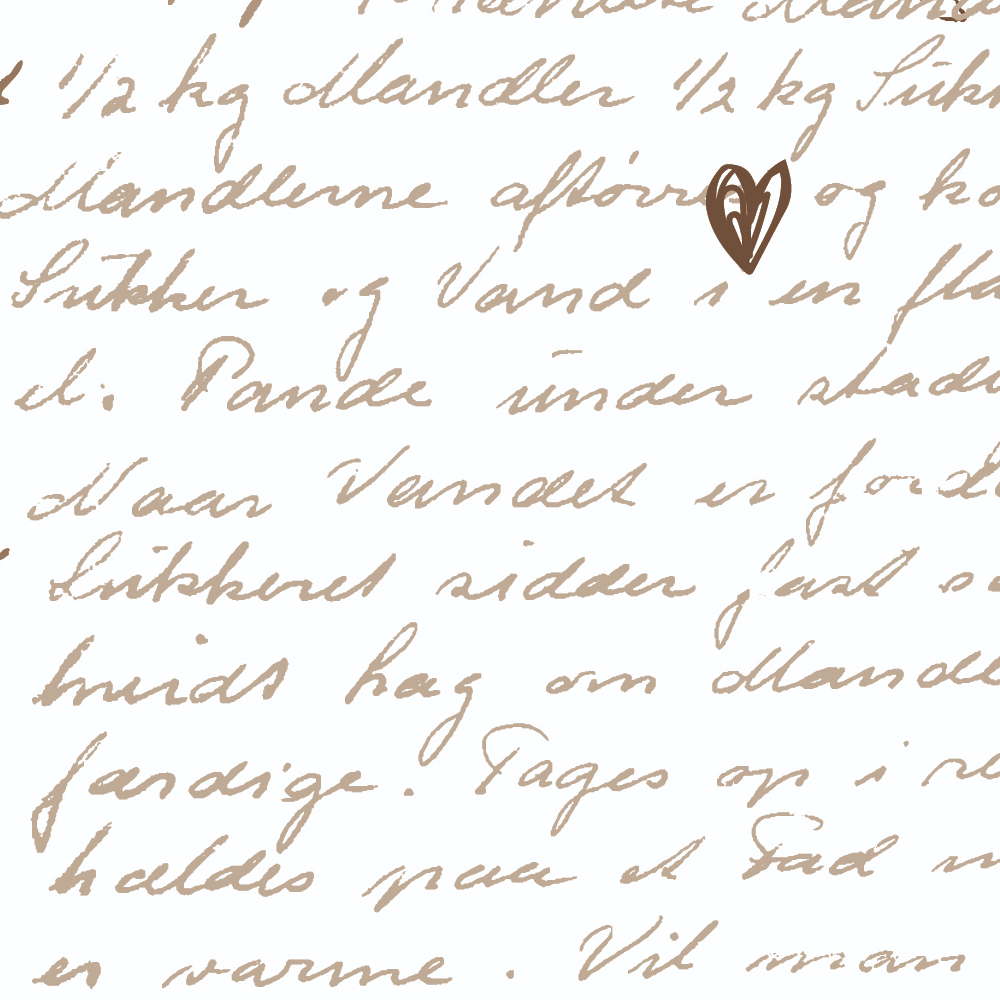 1/2 kg Mandler 1/2 kg Sukk
Mandlerne aftørres og ko
Sukker og Vand i en fla
el. Pande under stadi
Naar Vandet er forda
Sukkeret sidder fast so
hvidt hag om Mandle
færdige. Tages op i re
hældes paa et Fad m
er varme. Vil man